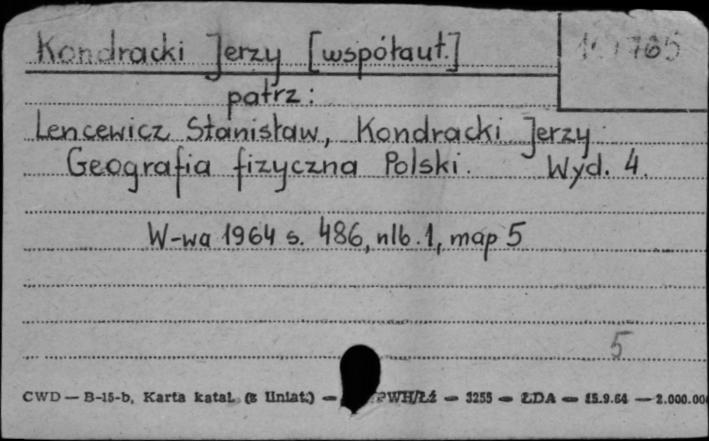 Kondracki Jerzy [współaut.]
patrz:
Lencewicz Stanisław, Kondracki Jerzy
Geografia fizyczna Polski. Wyd. 4.
W-wa 1964 s. 486, nlb. 1, map 5
5
CWD — B-15-b, Karta katal. (z liniat.) — PWH/Łź — 3255 — ŁDA — 15.9.64 — 2.000.00